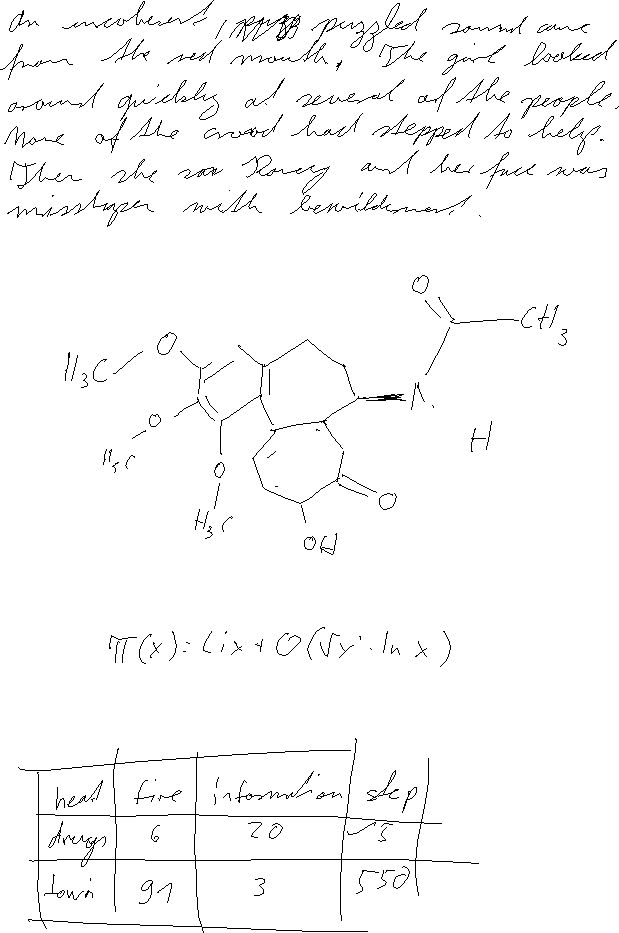 An incoherent, puzzled sound came
from the red mouth. The girl looked
around quickly at several of the people.
None of the crowd had stepped to help.
Then she saw Roney and her face was
misshapen with bewilderment.
O
CH3
H3C
O
N
H
O
H3C
O
O
H3C
OH
π(x) = Li x + O(√x · ln x)
heat fire information step
drugs 6 20
town 91 3 550